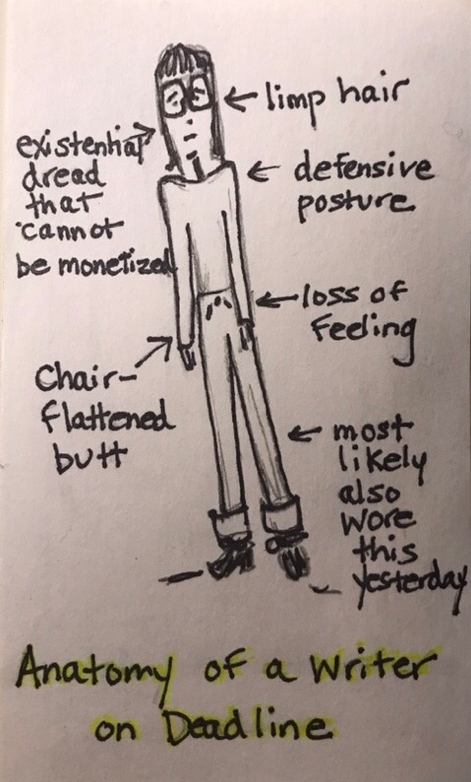 limp hair
existential
dread
that
cannot
be monetized
defensive
posture
loss of
feeling
Chair-
flattened
butt
most
likely
also
wore
this
yesterday
Anatomy of a Writer
on Deadline